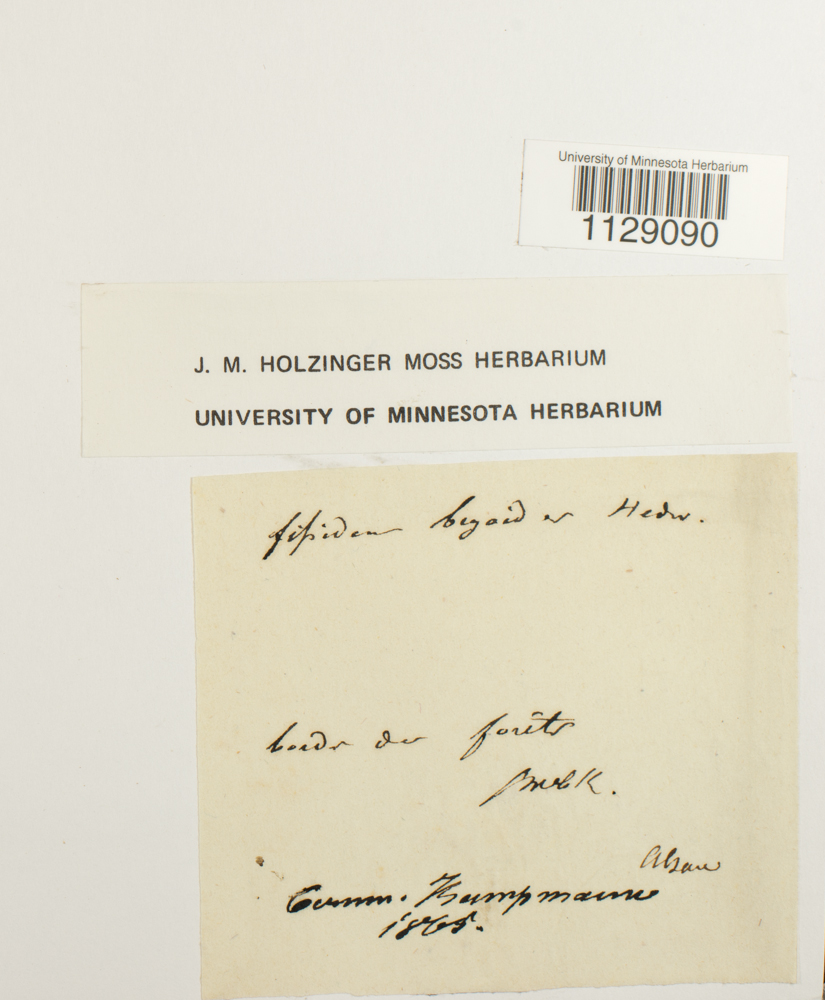 University of Minnesota Herbarium
1129090
J. M. HOLZINGER MOSS HERBARIUM
UNIVERSITY OF MINNESOTA HERBARIUM
fissidens bryoides Hedw.
bords des forêts
Alsace
Comm. Kampmann
1865.